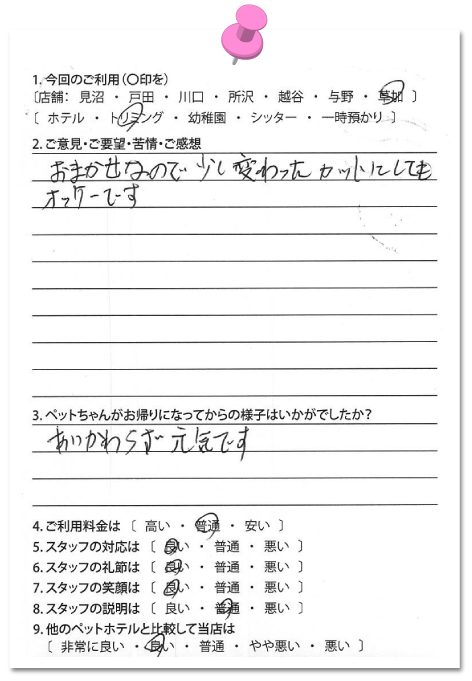 1.今回のご利用(〇印を)
〔店舗: 見沼 ・ 戸田 ・ 川口 ・ 所沢 ・ 越谷 ・ 与野 ・ 草加 〕
〔 ホテル ・ トリミング ・ 幼稚園 ・ シッター ・ 一時預かり 〕
2.ご意見・ご要望・苦情・ご感想
おまかせなので少し変わったカットにしても
オッケーです
3.ペットちゃんがお帰りになってからの様子はいかがでしたか?
あいかわらず元気です
4.ご利用料金は 〔 高い ・ 普通 ・ 安い 〕
5.スタッフの対応は 〔 良い ・ 普通 ・ 悪い 〕
6.スタッフの礼節は 〔 良い ・ 普通 ・ 悪い 〕
7.スタッフの笑顔は 〔 良い ・ 普通 ・ 悪い 〕
8.スタッフの説明は 〔 良い ・ 普通 ・ 悪い 〕
9.他のペットホテルと比較して当店は
〔 非常に良い ・ 良い ・ 普通 ・ やや悪い ・ 悪い 〕